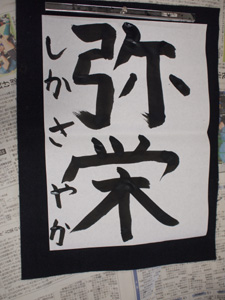 弥栄
しかさやか